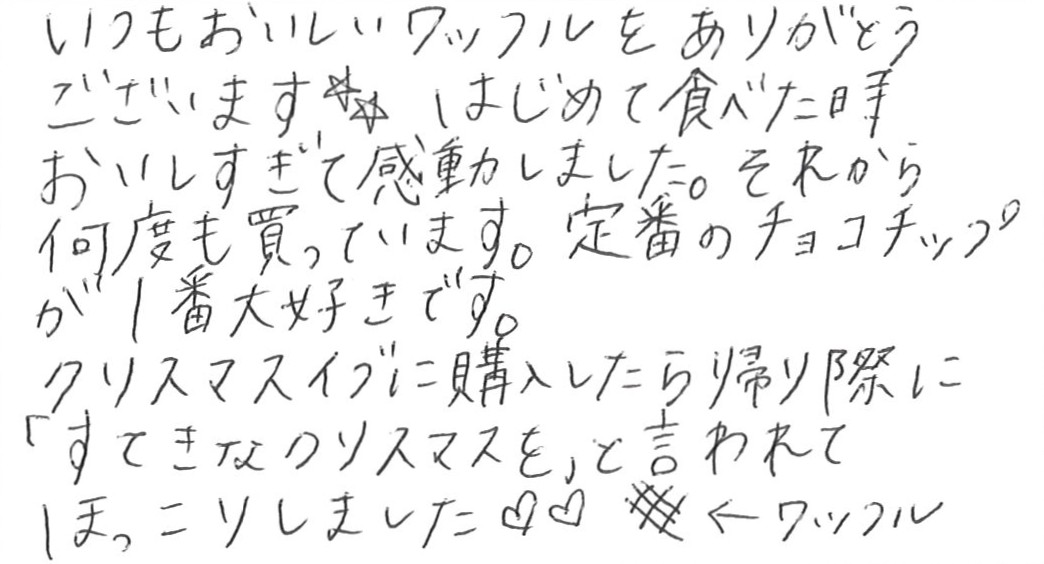 いつもおいしいワッフルをありがとう
ございます☆☆ はじめて食べた時
おいしすぎて感動しました。それから
何度も買っています。定番のチョコチップ
が1番大好きです。
クリスマスイブに購入したら帰り際に
「すてきなクリスマスを」と言われて
ほっこりしました♡♡ ←ワッフル